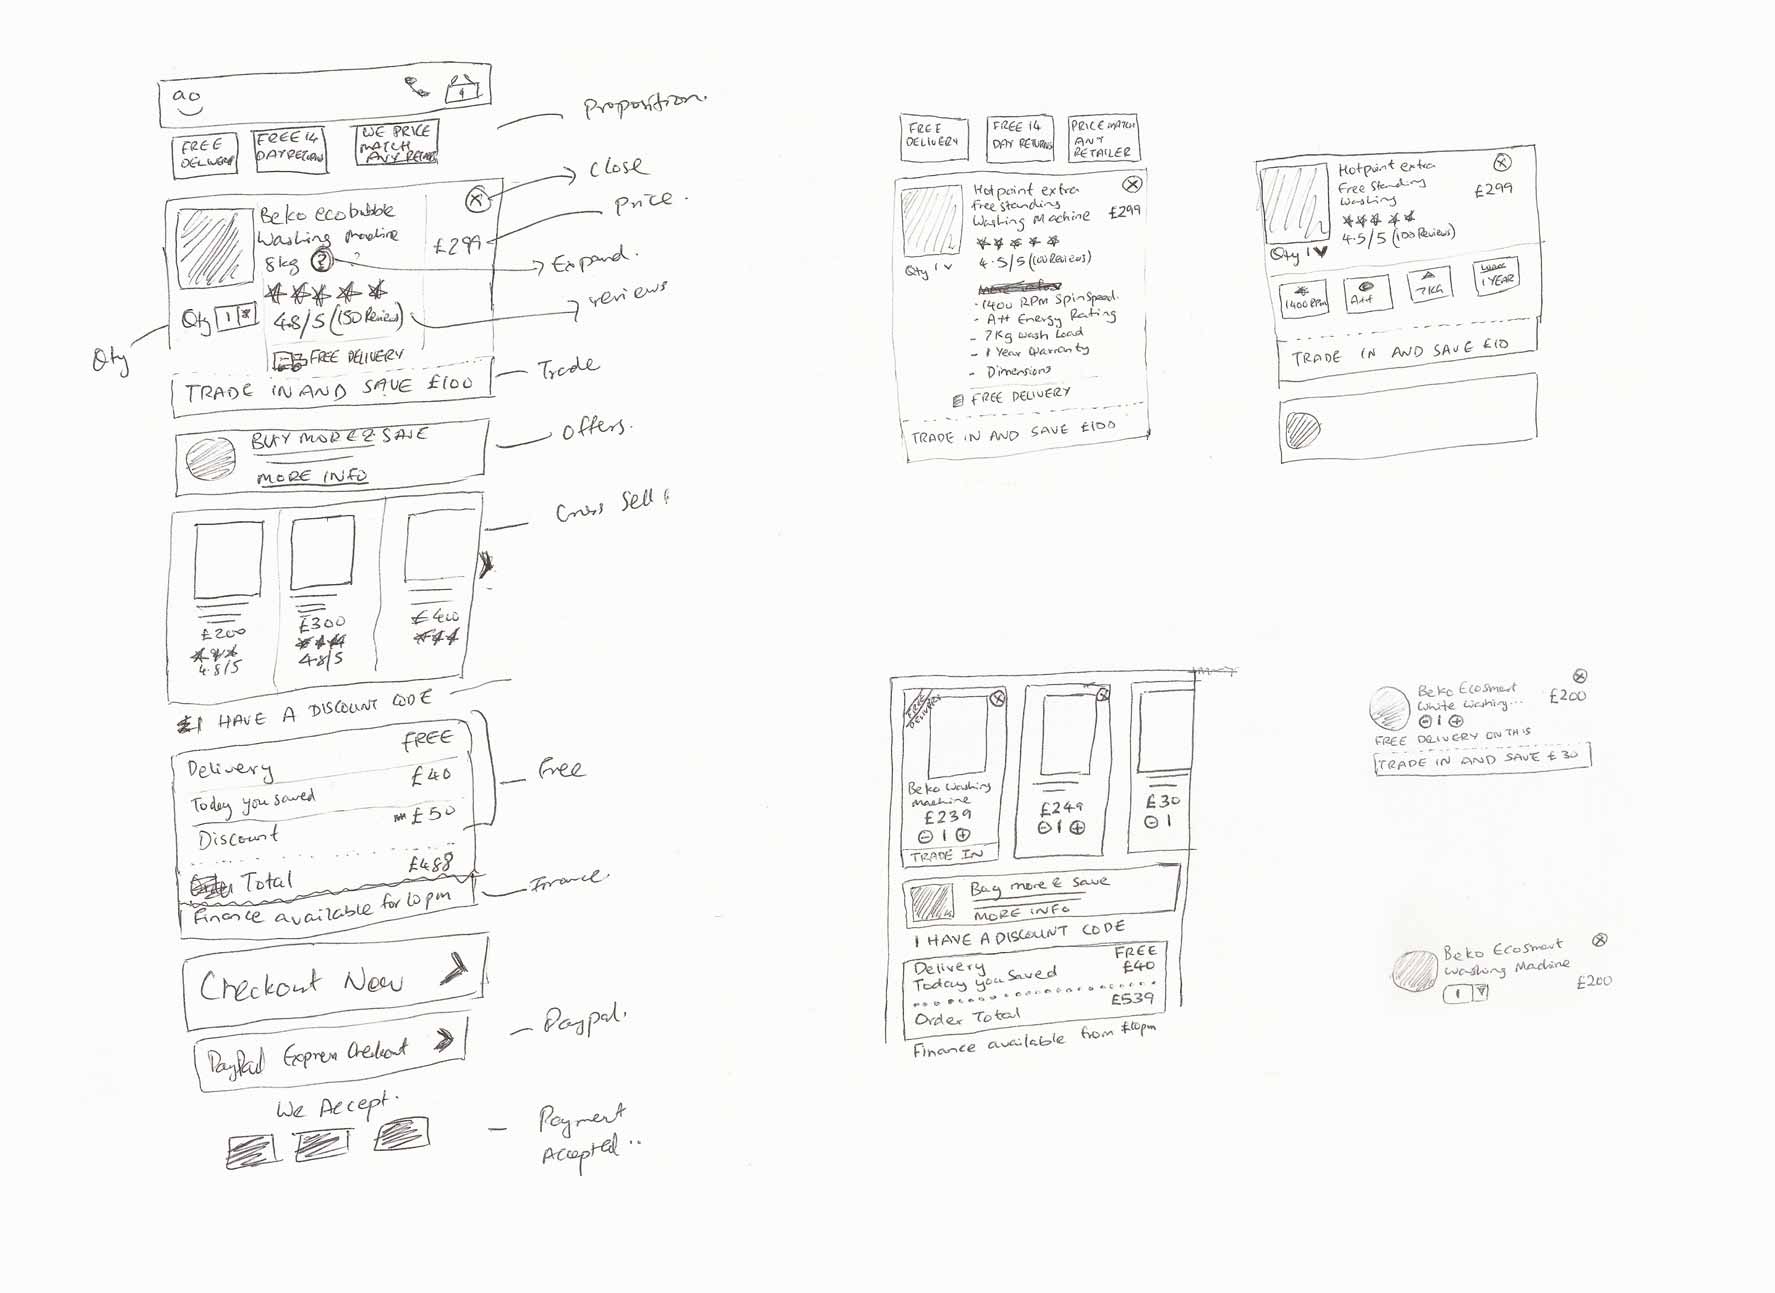 ao
FREE
DELIVERY
FREE 14
DAY RETURNS
WE PRICE
MATCH
ANY RETAIL
Proposition.
Beko ecobubble
Washing Machine
8kg ? ?
£299
4.8/5 (150 Reviews)
Qty 1
FREE DELIVERY
TRADE IN AND SAVE £100
Close
Price.
Expand.
reviews
Qty
Trade
BUY MORE & SAVE
MORE INFO
Offers.
Cross Sell
£200
4.8/5
£300
4.8/5
£400
I HAVE A DISCOUNT CODE
Delivery FREE
Today you saved £40
Discount £50
Total £488
Finance available for 10pm
Free
Finance.
Checkout Now
PayPal Express Checkout
Paypal.
We Accept.
Payment
Accepted..
FREE
DELIVERY
FREE 14
DAY RETURNS
PRICE MATCH
ANY
RETAILER
Hotpoint extra
Free Standing
Washing Machine £299
4.5/5 (100 Reviews)
Qty 1
- 1400 RPM Spin Speed.
- A++ Energy Rating
- 7Kg Wash Load
- 1 Year Warranty
- Dimensions
FREE DELIVERY
TRADE IN AND SAVE £100
Hotpoint extra
Free Standing £299
Washing
4.5/5 (100 Reviews)
Qty 1
1400 RPM
A++
7KG
1 YEAR
TRADE IN AND SAVE £10
FREE
DELIVERY
Beko Washing
Machine
£239
1
TRADE IN
£249
1
£30
1
Buy more & save
MORE INFO
I HAVE A DISCOUNT CODE
Delivery FREE
Today you saved £40
Order Total £539
Finance available from £10pm
Beko EcoSmart
White Washing... £200
1
FREE DELIVERY ON THIS
TRADE IN AND SAVE £30
Beko EcoSmart
Washing Machine
1 £200